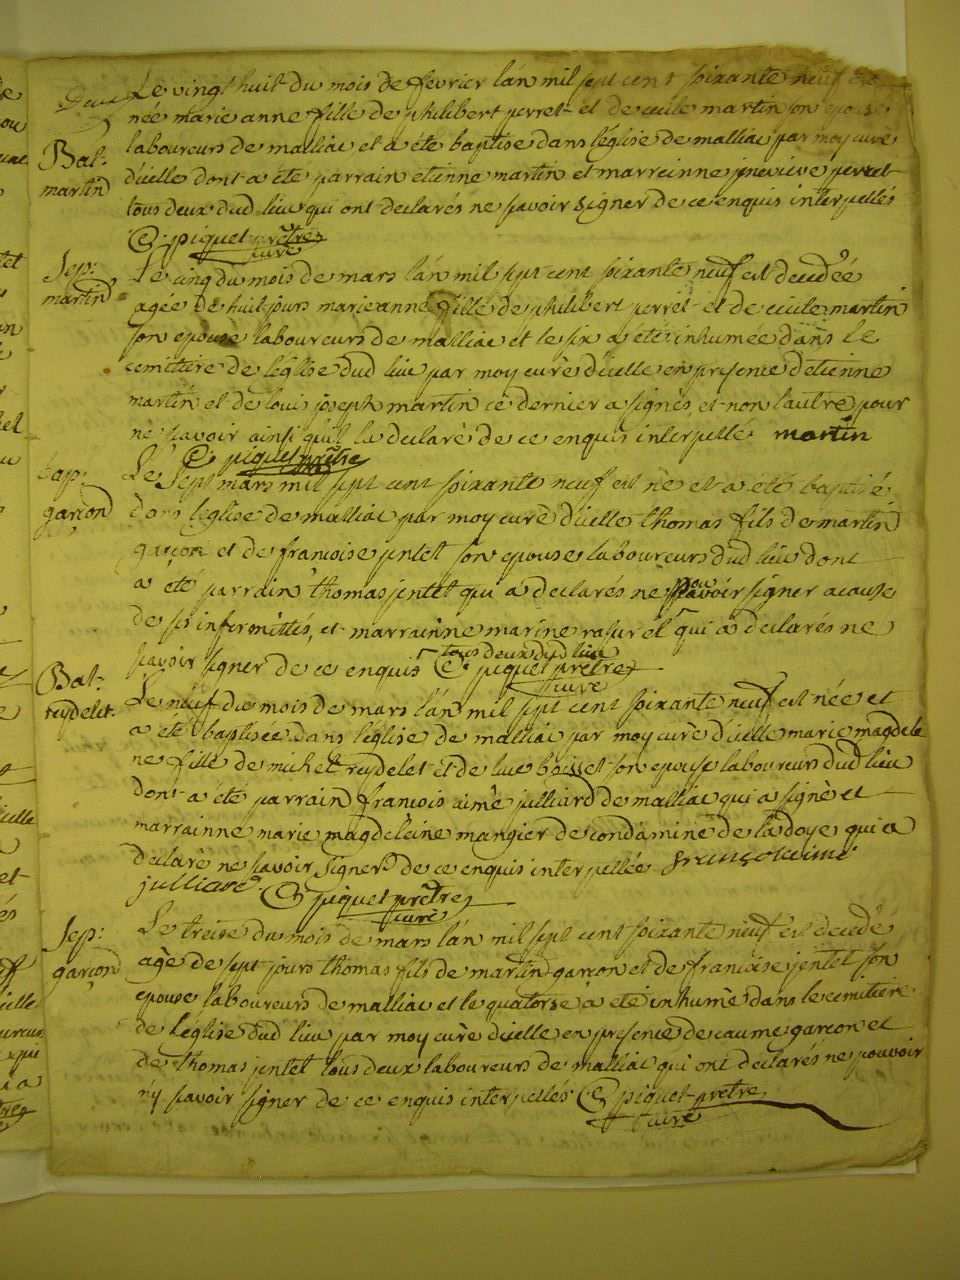 Le vingt huit du mois de fevrier lán mil sept cent soixante neuf est
née marie anne fille de philibert perret et de cecile martin son epouse
Bat:
martin
laboureurs de malliac et a été baptise dans l'église de malliac par moy curé
d'icelle dont a été parrain etienne martin et marreinne jenevieve perret
tous deux dud lieu qui ont declarés ne savoir signer de ce enquis interpellés
piquet prêtre
curé
Sep:
martin
Le cinq du mois de mars lán mil sept cent soixante neuf est decedée
agée de huit jours marie anne fille de philibert perret et de cecile martin
son epouse laboureurs de malliac et le six a été inhumée dans le
cemitiere de l'église dud lieu par moy curé d'icelle en presence detienne
martin et de louis joseph martin ce dernier a signés et non lautre pour
ne savoir ainsi quil la declaré de ce enquis interpellé martin
piquet prêtre
bap:
garçon
Le Sept mars mil sept cent soixante neuf est né et a été baptisé
dans l'église de malliac par moy curé d'icelle thomas fils de martin
garçon et de francoise jentet son epouse laboureurs dud lieu dont
a été parrain thomas jentet qui a declarés ne pouvoir signer acause
de ses infirmittés, et marrainne marine rasurel qui a declarés ne
tous deux dud lieu
savoir signer de ce enquis piquet prêtre
curé
Bat:
reydelet.
Le neuf du mois de mars lán mil sept cent soixante neuf est née et
a été baptisée dans l'église de malliac par moy curé d'icelle marie magdele
ne fille de michel reydelet et de luce boisset son epouse laboureurs dud lieu
dont a été parrain francois aimé julliard de malliac qui a signé et
marrainne marie magdeleine mangier de condamine de la doye qui a
declaré ne savoir signer de ce enquis interpellée françois aimé
julliard
piquet prêtre
curé
Sep:
garçon
Le treise du mois de mars lán mil sept cent soixante neuf est decedé
agé de sept jours thomas fils de martin garçon et de francoise jentet son
epouse laboureurs de malliac et le quatorse a été inhumé dans le cemitiere
de l'église dud lieu par moy curé d'icelle en presence de caume garçon et
de thomas jentet tous deux laboureurs de malliac qui ont declarés ne pouvoir
ny savoir signer de ce enquis interpellés piquet prêtre
curé